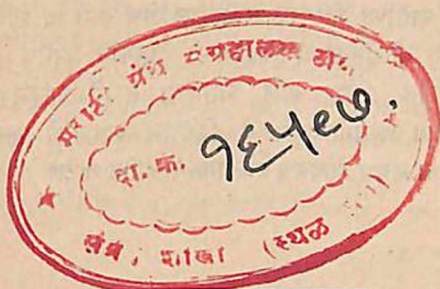 मराठी ग्रंथ संग्रहालय
दा. क्र. १६५९७.
शाखा (स्थळ